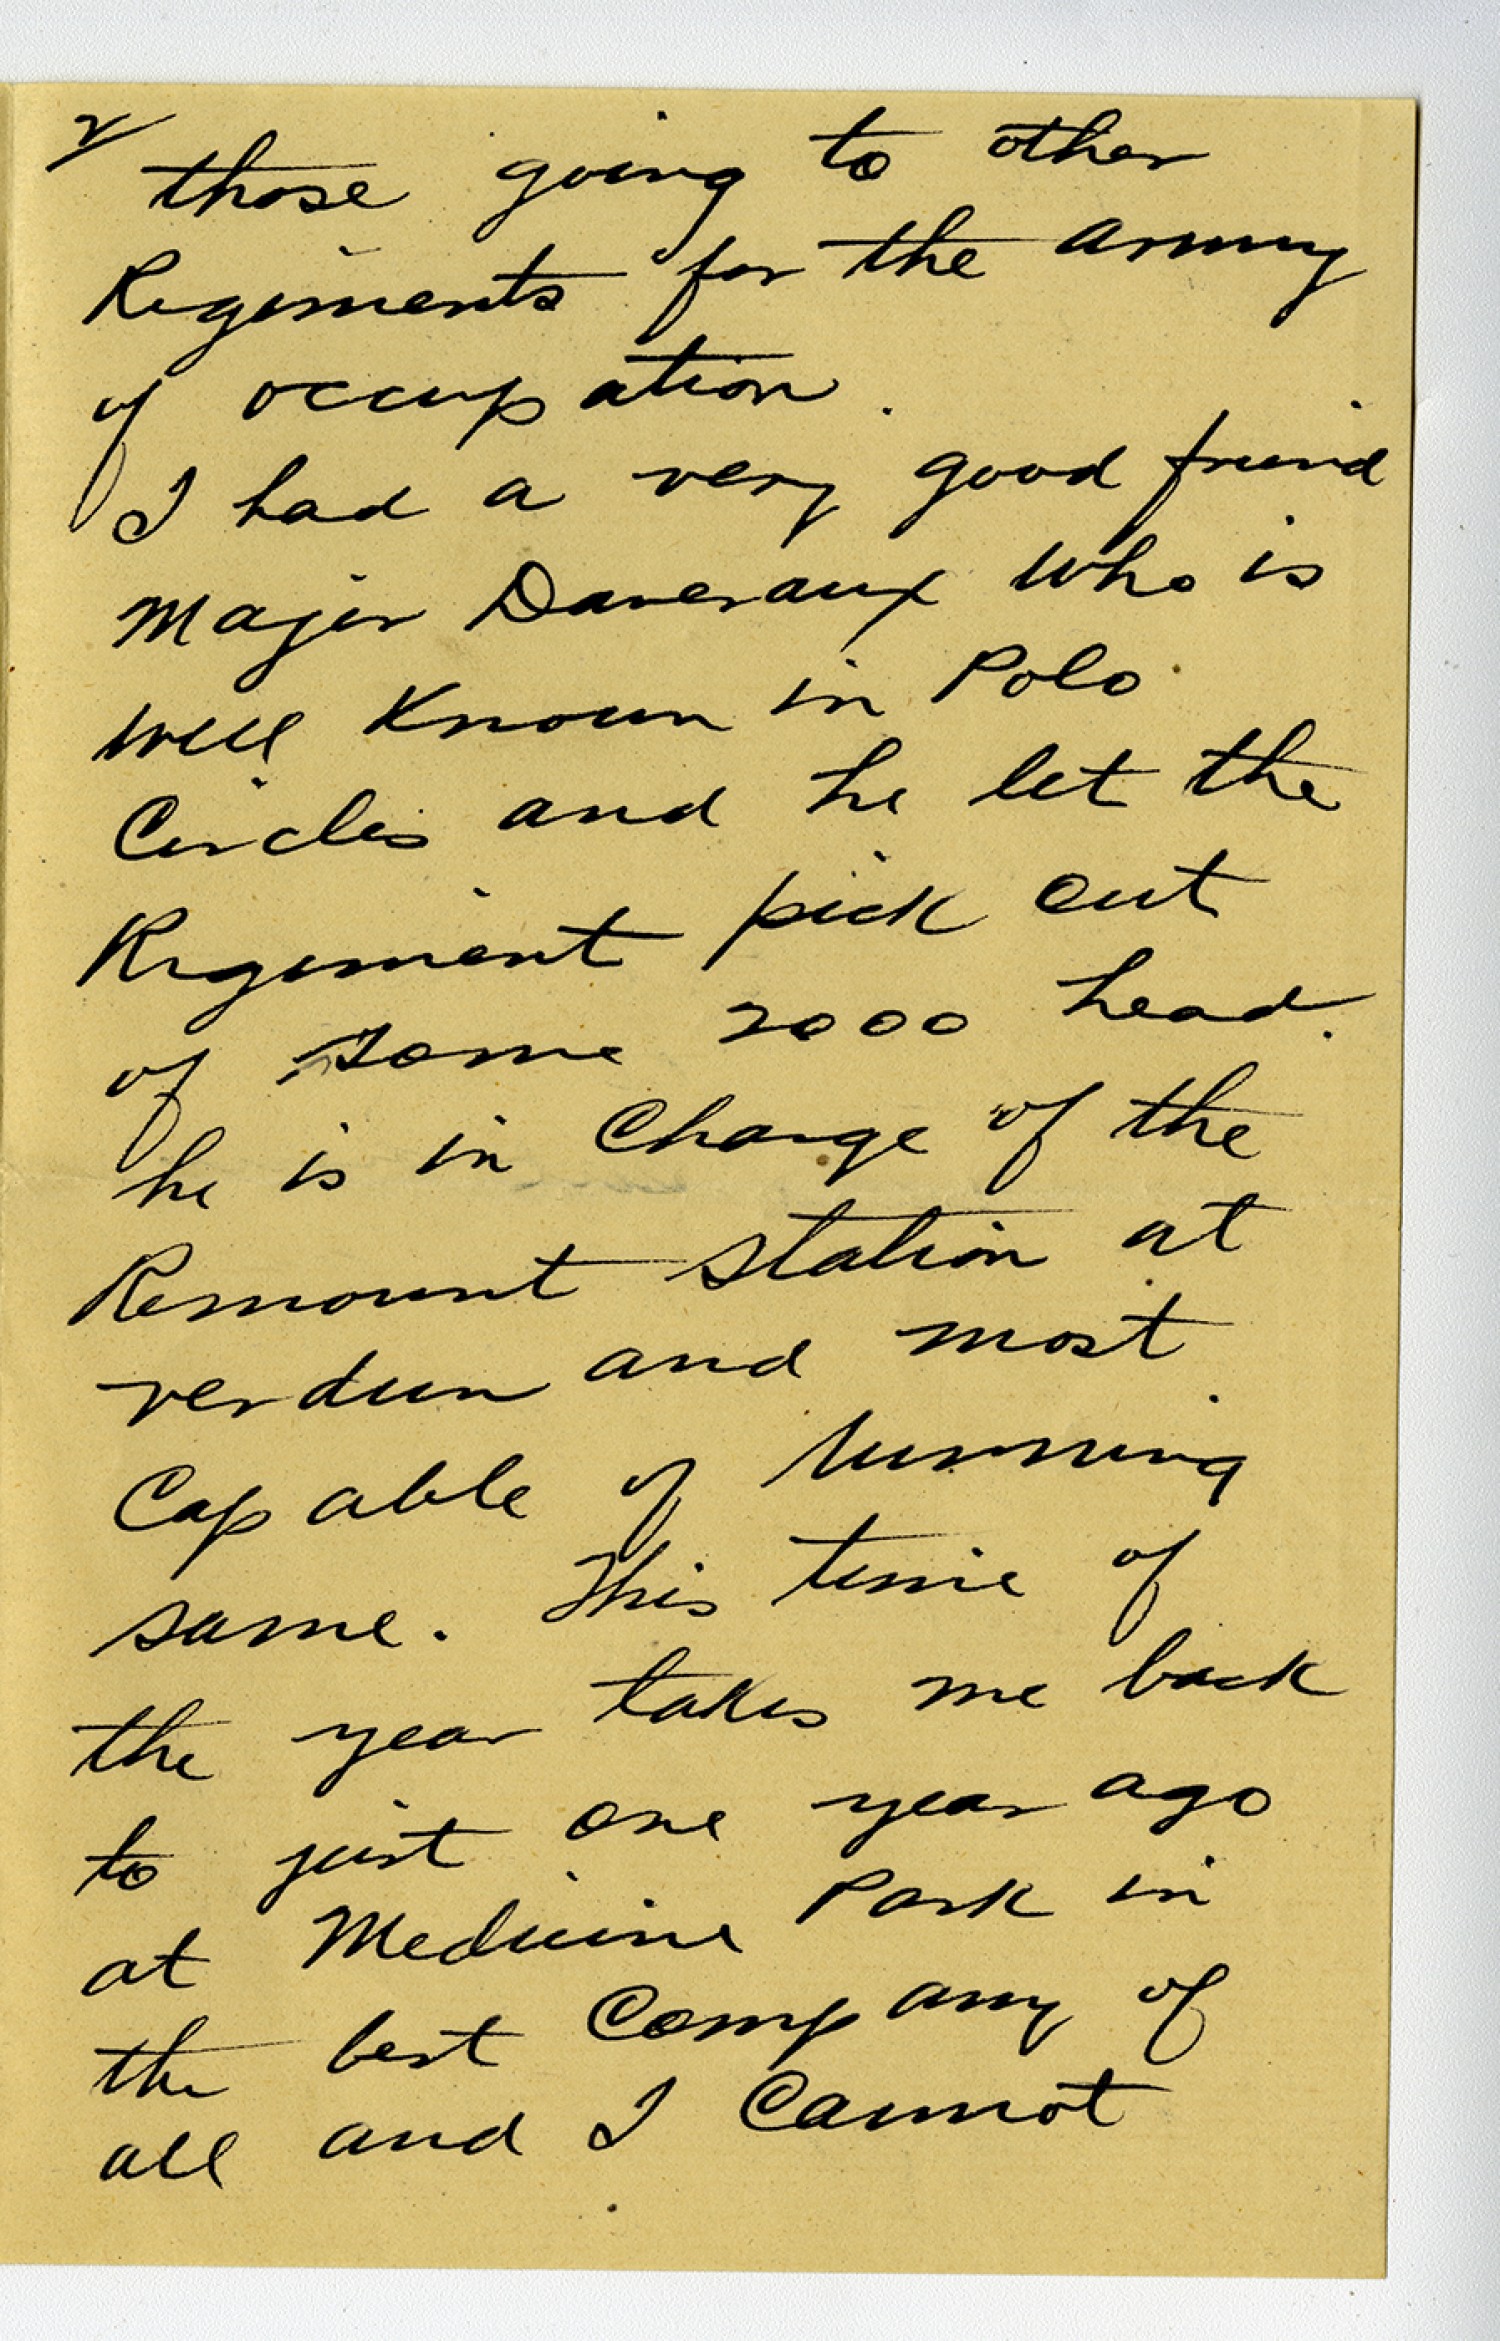 2
those going to other
Regiments for the army
of occupation.
I had a very good friend
Major Daveraux who is
well known in Polo
Circles and he let the
Regiment pick out
of some 2000 head.
he is in charge of the
Remount station at
verdun and most
Capable of running
same. This time of
the year takes me back
to just one year ago
at Medicine Park in
the best Company of
all and I cannot